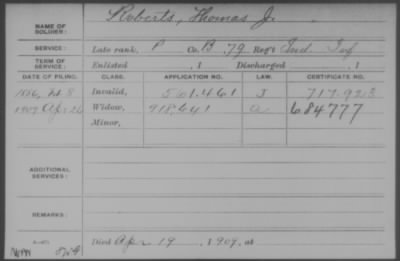 NAME OF SOLDIER: Roberts, Thomas J.
SERVICE: Late rank, P Co. B, 79 Reg't Ind Inf
TERM OF SERVICE: Enlisted , 1 Discharged , 1
DATE OF FILING. CLASS. APPLICATION NO. LAW. CERTIFICATE NO.
1886, 8 Invalid, 561.461 J 717.923
1909 Apr 26 Widow, 918,641 a 684777
Minor,
ADDITIONAL SERVICES:
REMARKS:
Died Apr 19, 1909, at